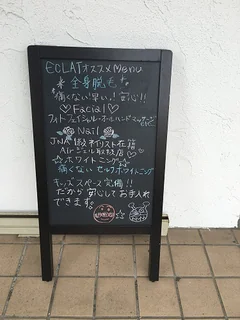 ECLATオススメMenu
*全身脱毛*
痛くない!早い!安心!!
♡Facial♡
フォトフェイシャル・オールハンドマッサージ
etc...
Nail
JNA1級ネイリスト在籍
Airジェル取扱店♡
☆ホワイトニング☆
痛くない セルフホワイトニング
キッズスペース完備!!
だから安心してお手入れ
できます。